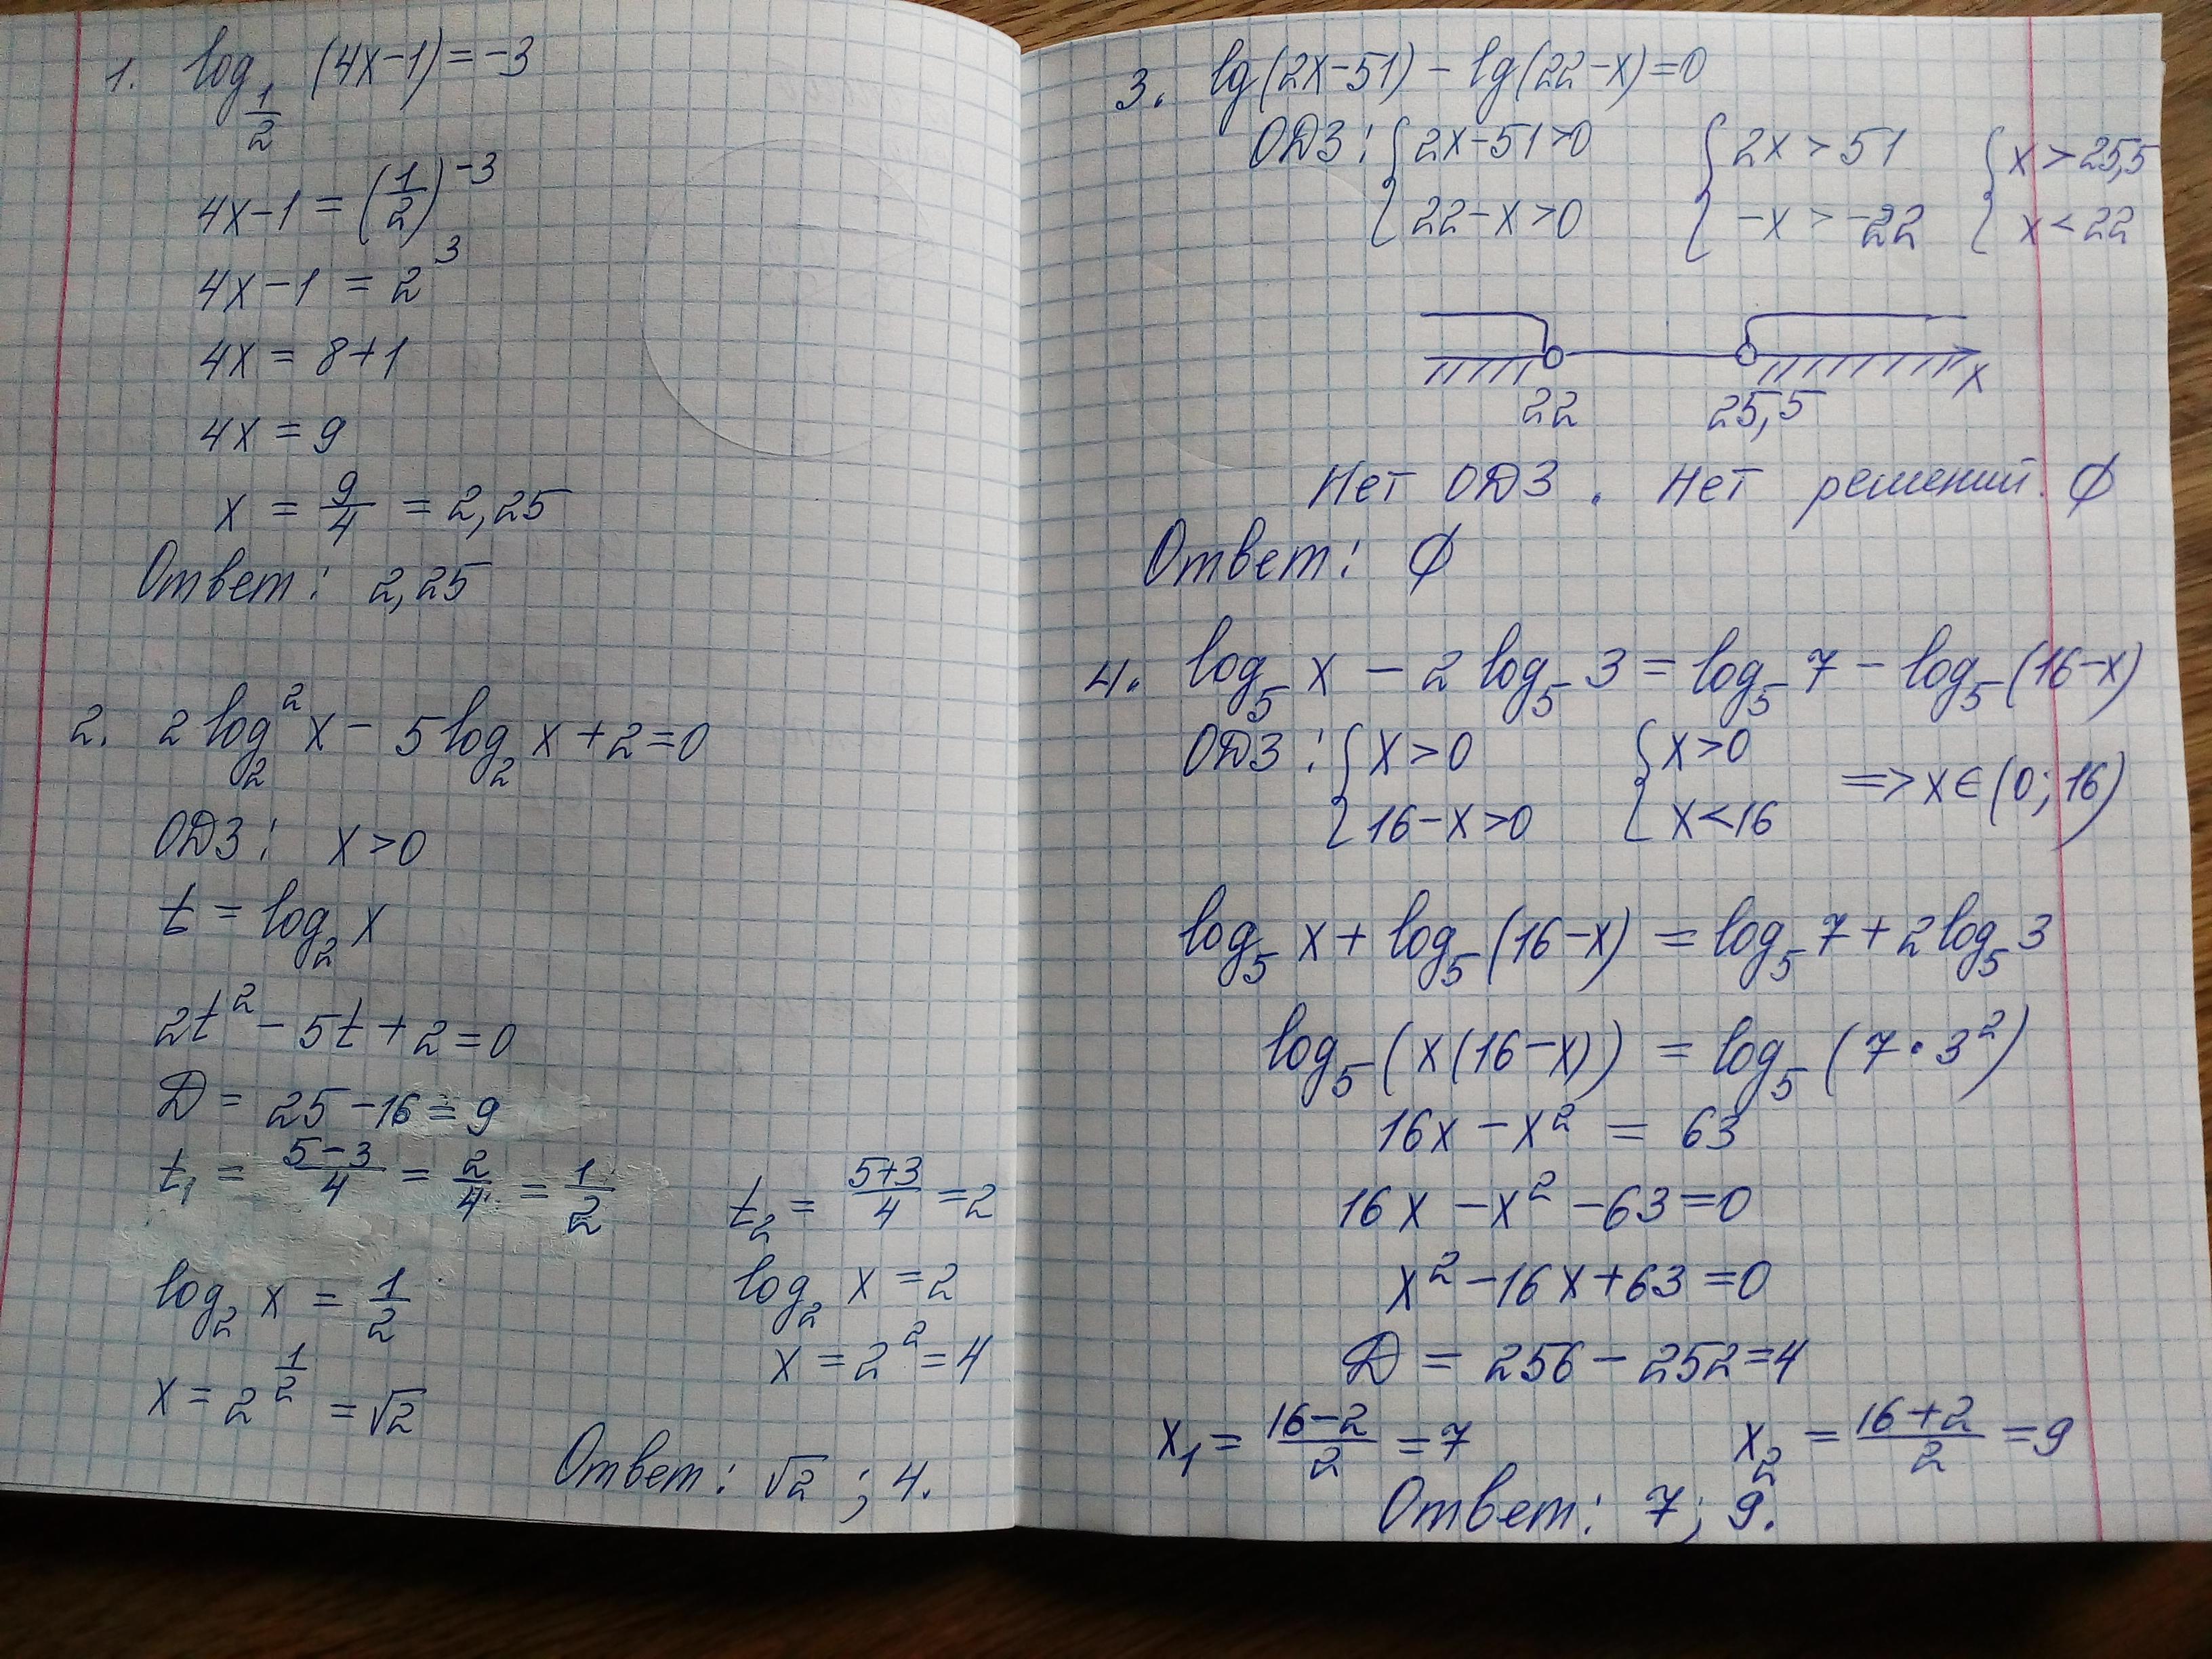 1. log_{1/2} (4x-1) = -3
4x-1 = (1/2)^{-3}
4x-1 = 2^3
4x = 8+1
4x = 9
x = 9/4 = 2,25
Ответ: 2,25
2. 2 log_2^2 x - 5 log_2 x + 2 = 0
ОДЗ: x > 0
t = log_2 x
2t^2 - 5t + 2 = 0
D = 25 - 16 = 9
t_1 = (5-3)/4 = 2/4 = 1/2 t_2 = (5+3)/4 = 2
log_2 x = 1/2 log_2 x = 2
x = 2^{1/2} = √2 x = 2^2 = 4
Ответ: √2 ; 4.
3. lg(2x-51) - lg(22-x) = 0
ОДЗ: { 2x-51>0 { 2x > 51 { x > 25,5
{ 22-x>0 { -x > -22 { x < 22
x
22 25,5
Нет ОДЗ. Нет решений. ∅
Ответ: ∅
4. log_5 x - 2 log_5 3 = log_5 7 - log_5 (16-x)
ОДЗ: { x > 0 { x > 0 => x ∈ (0; 16)
{ 16-x>0 { x < 16
log_5 x + log_5 (16-x) = log_5 7 + 2 log_5 3
log_5 (x(16-x)) = log_5 (7 · 3^2)
16x - x^2 = 63
16x - x^2 - 63 = 0
x^2 - 16x + 63 = 0
D = 256 - 252 = 4
x_1 = (16-2)/2 = 7 x_2 = (16+2)/2 = 9
Ответ: 7; 9.